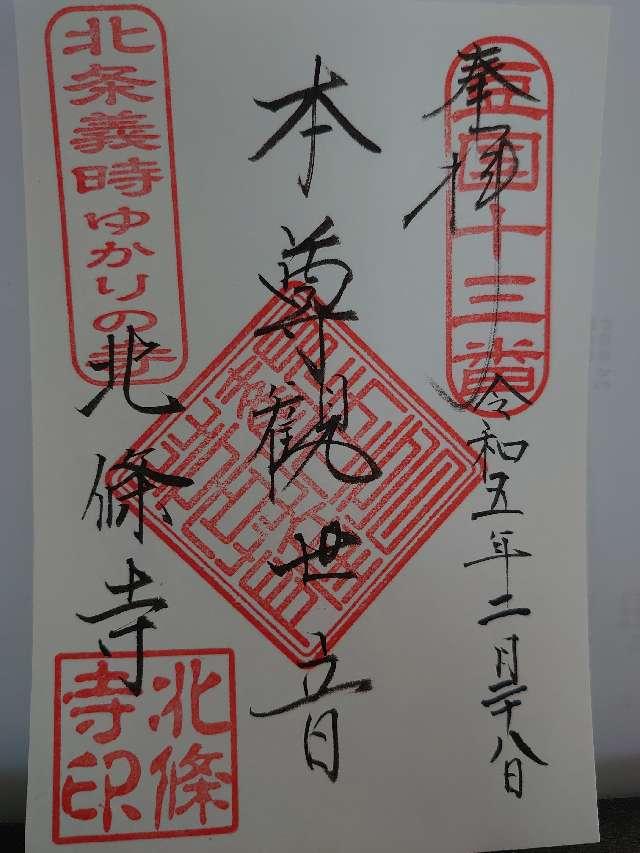 奉拝
豆国十三番
令和五年二月二十八日
本尊観世音
北条義時ゆかりの寺
北條寺
北條寺印